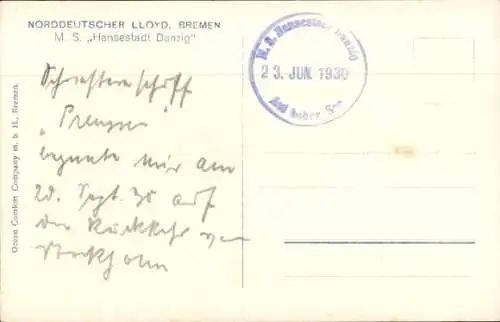 NORDDEUTSCHER LLOYD, BREMEN
M. S. „Hansestadt Danzig"
M. S. Hansestadt Danzig
23. JUN. 1930
Auf hoher See
Schwesternschiff
„Preussen"
begegnete mir am
20. Sept. 30 auf
der Rückkehr von
Stockholm
Ocean Comfort Company m. b. H., Bremen.